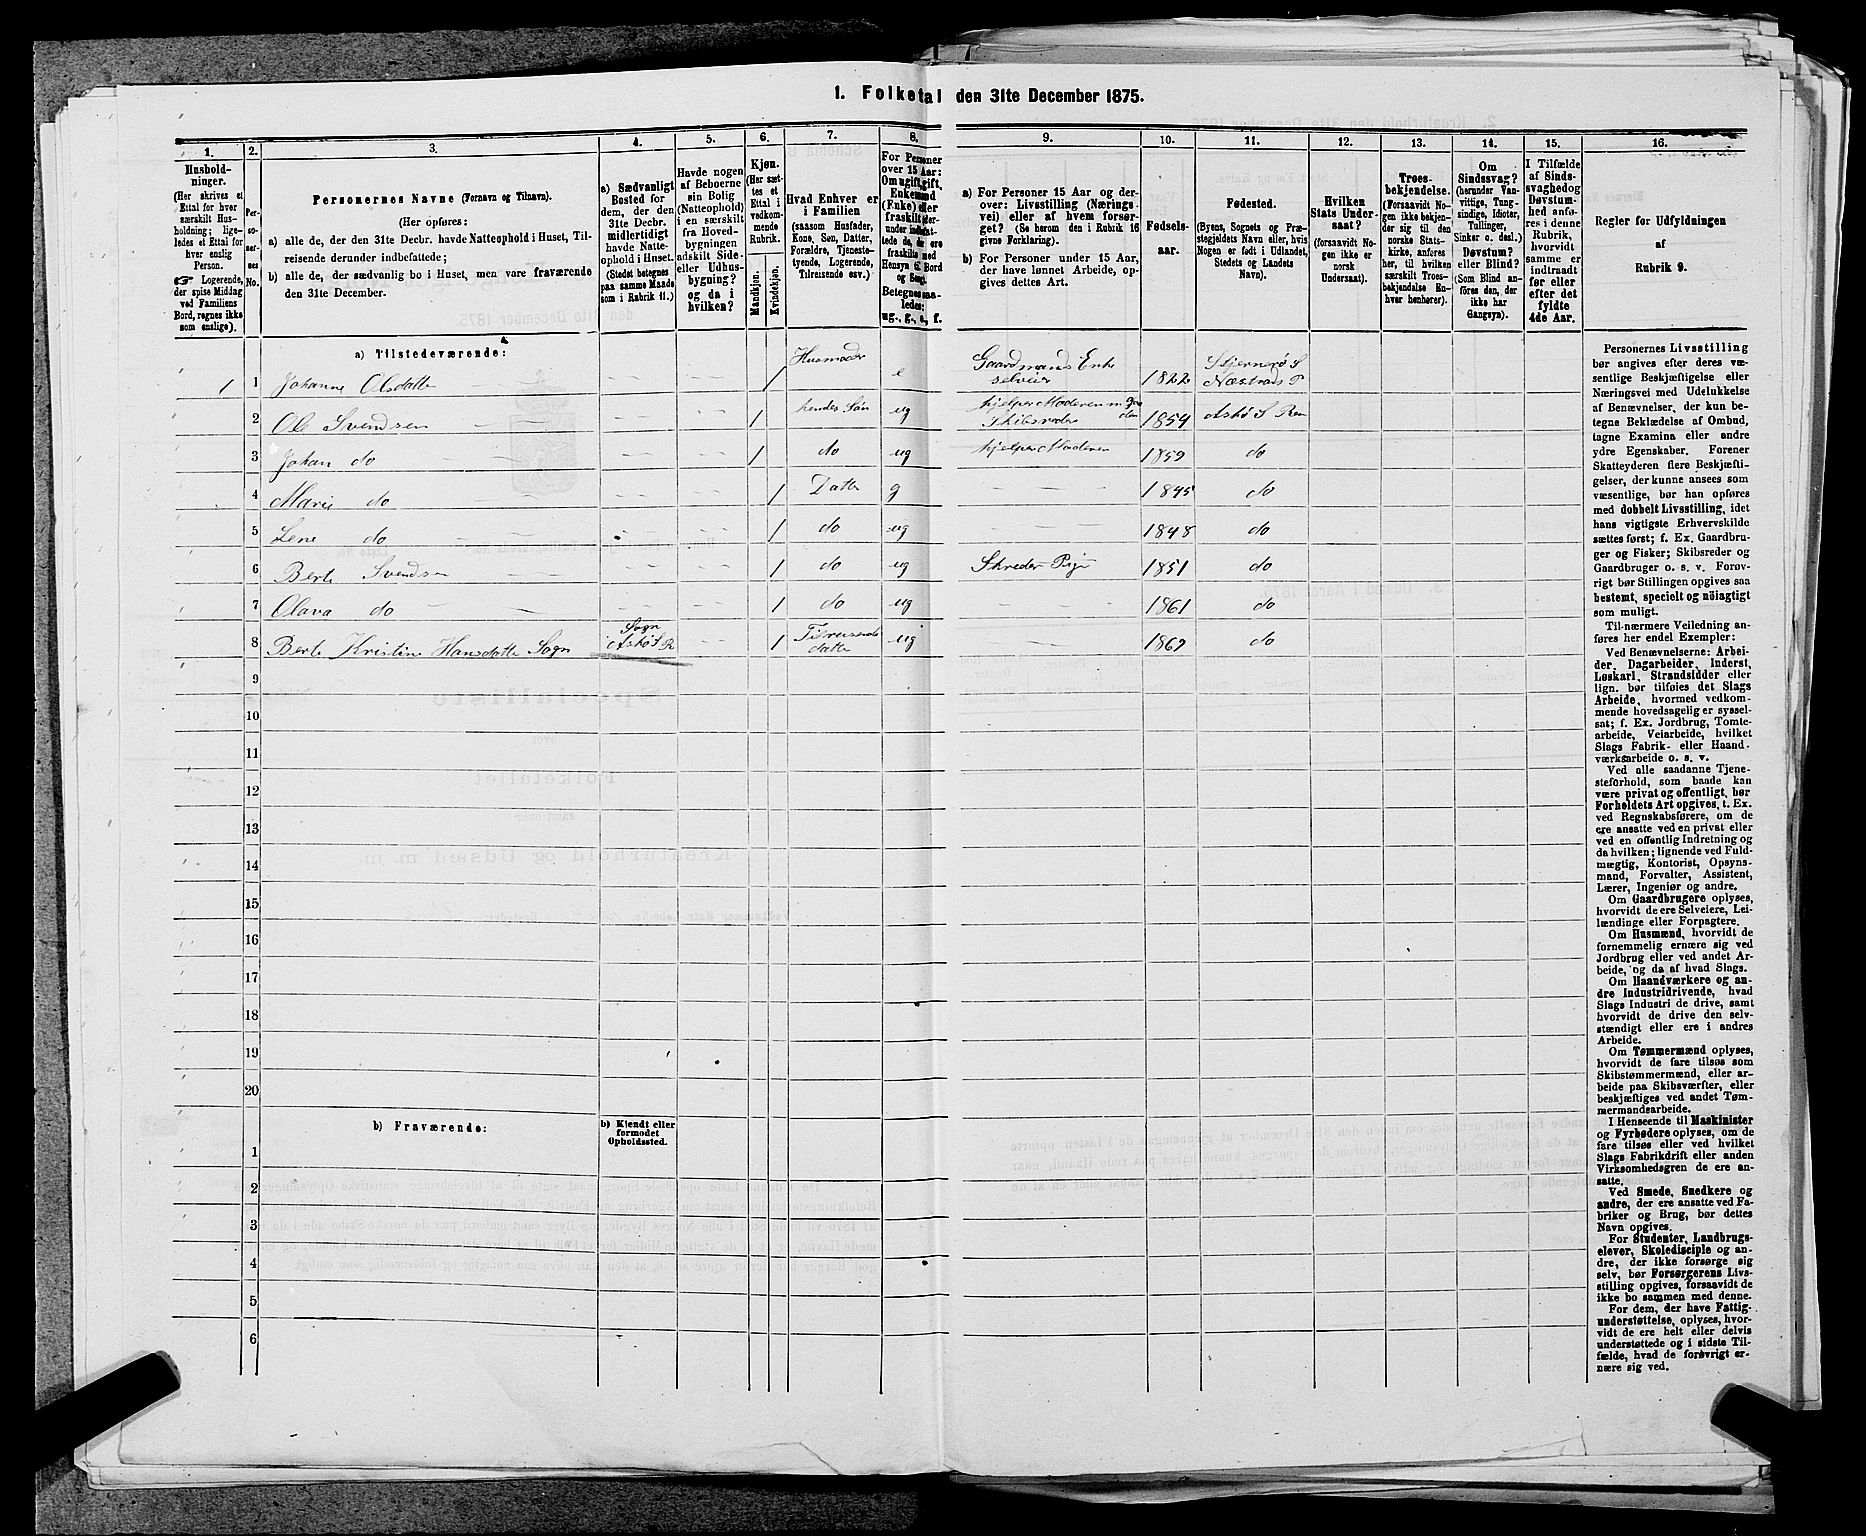 1. Folketal den 31te December 1875.
1.
Hushold-
ninger.
(Her skrives et
Ettal for hver
særskilt Hus-
holdning; lige-
ledes et Ettal for
hver enslig
Person.
☞ Logerende,
der spise Middag
ved Familiens
Bord, regnes ikke
som enslige).
2.
Per-
so-
ner-
nes
No.
3.
Personernes Navne (Fornavn og Tilnavn).
(Her opføres:
a) alle de, der den 31te Decbr. havde Natteophold i Huset, Til-
reisende derunder indbefattede;
b) alle de, der sædvanlig bo i Huset, men vare fraværende
den 31te December.
4.
a) Sædvanligt
Bosted for
dem, der den
31te Decbr.
midlertidigt
havde Natte-
ophold i Huset.
(Stedet betegnes
paa samme Maade
som i Rubrik 11.)
5.
Havde nogen
af Beboerne
sin Bolig
(Natteophold)
i en særskilt
fra Hoved-
bygningen
adskilt Side-
eller Udhus-
bygning?
og da i
hvilken?
6.
Kjøn.
(Her sæt-
tes et
Ettal i
vedkom-
mende
Rubrik.
Mandkjøn.
Kvindekjøn.
7.
Hvad Enhver er
i Familien
(saasom Husfader,
Kone, Søn, Datter,
Forældre, Tjeneste-
tyende, Logerende,
Tilreisende osv.)
8.
For Personer
over 15 Aar:
Om ugift, gift,
Enkemand
(Enke) eller
fraskilt
Betegnes saa-
ledes:
ug., g., e., f.
9.
a) For Personer 15 Aar og der-
over: Livsstilling (Nærings-
vei) eller af hvem forsør-
get? (Se herom den i Rubrik 16
givne Forklaring).
b) For Personer under 15 Aar,
der have lønnet Arbeide, op-
gives dettes Art.
10.
Fødsels-
aar.
11.
Fødested.
(Byens, Sognets og Præ-
stegjeldets Navn eller, hvis
Nogen er født i Udlandet,
Stedets og Landets
Navn).
12.
Hvilken
Stats Under-
saat?
(forsaavidt No-
gen ikke er
norsk
Undersaat).
13.
Troes-
bekjendelse.
(Forsaavidt No-
gen ikke bekjen-
der sig til den
norske Stats-
kirke, anføres
her, til hvilken
særskilt Troes-
bekjendelse En-
hver henhører).
14.
Om
Sindssvag?
(herunder Van-
vittige, Tung-
sindige, Idioter,
Tullinger,
Sinker o. desl.)
Døvstum?
eller Blind?
(Som Blind an-
føres den, der
ikke har
Gangsyn).
15.
I Tilfælde
af Sinds-
svaghed og
Døvstum-
hed anfø-
res i denne
Rubrik,
hvorvidt
samme er
indtraadt
før eller
efter det
fyldte
4de Aar.
16.
Regler for Udfyldningen
af
Rubrik 9.
a) Tilstedeværende:
1 1 Johanne Olsdatte 1 Husmoder e Gaardmands Enke selveier 1822 Stjernerø S Næstrans P
2 Ole Svendsen 1 hendes Søn ug hjelper Moderen m Gaarden Skibsreder 1854 Askø S Ren
3 Johan do 1 do ug hjelper Moderen 1859 do
4 Marie do 1 Datte g 1845 do
5 Lene do 1 do ug 1848 do
6 Berte Svendsen 1 do ug Skreder Pige 1851 do
7 Olava do 1 do ug 1861 do
8 Berte Kristine Hansdatte Sogn Sogn Askø S R 1 Tilreisende datte ug 1869 do
9
10
11
12
13
14
15
16
17
18
19
20
b) Fraværende:
b) Kjendt eller
formodet
Opholdssted.
1
2
3
4
5
6
Personernes Livsstilling
bør angives efter deres væ-
sentlige Beskjæftigelse eller
Næringsvei med Udelukkelse
af Benævnelser, der kun be-
tegne Beklædelse af Ombud,
tagne Examina eller andre
ydre Egenskaber. Forener
Skatteyderen flere Beskjæfti-
gelser, der kunne ansees som
væsentlige, bør han opføres
med dobbelt Livsstilling, idet
hans vigtigste Erhvervskilde
sættes først; f. Ex. Gaardbru-
ger og Fisker; Skibsreder og
Gaardbruger o. s. v. Forøv-
rigt bør Stillingen opgives saa
bestemt, specielt og nöiagtigt
som muligt.
Til nærmere Veiledning an-
føres her endel Exempler:
Ved Benævnelserne: Arbei-
der, Dagarbeider, Inderst,
Løskarl, Strandsidder eller
lign. bør tilføies det Slags
Arbeide, hvormed vedkom-
mende hovedsagelig er syssel-
sat; f. Ex. Jordbrug, Tomte-
arbeide, Veiarbeide, hvilket
Slags Fabrik- eller Haand-
værksarbeide o. s. v.
Ved alle saadanne Tjene-
steforhold, som baade kan
være privat og offentligt, bør
Forholdets Art opgives, t. Ex.
ved Regnskabsførere, om de
ere ansatte ved en privat eller
ved en offentlig Indretning og
da hvilken; lignende ved Fuld-
mægtig, Kontorist, Opsyns-
mand, Forvalter, Assistent,
Lærer, Ingeniør og andre.
Om Gaardbrugere oplyses,
hvorvidt de ere Selveiere, Lei-
lændinge eller Forpagtere.
Om Husmænd, hvorvidt de
fornemmelig ernære sig ved
Jordbrug eller ved andet Ar-
beide, og da af hvad Slags.
Om Haandværkere og an-
dre Industridrivende, hvad
Slags Industri de drive, samt
hvorvidt de drive den selv-
stændigt eller ere i andres
Arbeide.
Om Tømmermænd oplyses,
hvorvidt de fare tilsøs som
Skibstømmermænd, eller ar-
beide paa Skibsværfter, eller
beskjæftiges ved andet Tøm-
mermandsarbeide.
I Henseende til Maskinister
og Fyrbødere oplyses, om de
fare tilsøs eller ved hvilket
Slags Fabrikdrift eller anden
Virksomhedsgren de ere an-
satte.
Ved Smede, Snedkere og
andre, der ere ansatte ved Fa-
briker og Brug, bør dettes
Navn opgives.
For Studenter, Landbrugs-
elever, Skoledisciple og an-
dre, der ikke forsørge sig
selv, bør Forsørgerens Livs-
stilling opgives, forsaavidt de
ikke bo sammen med denne.
For dem, der have Fattig-
understøttelse, oplyses, hvor-
vidt de ere helt eller delvis
understøttede og i sidste Til-
fælde, hvad de forøvrigt er-
nære sig ved.